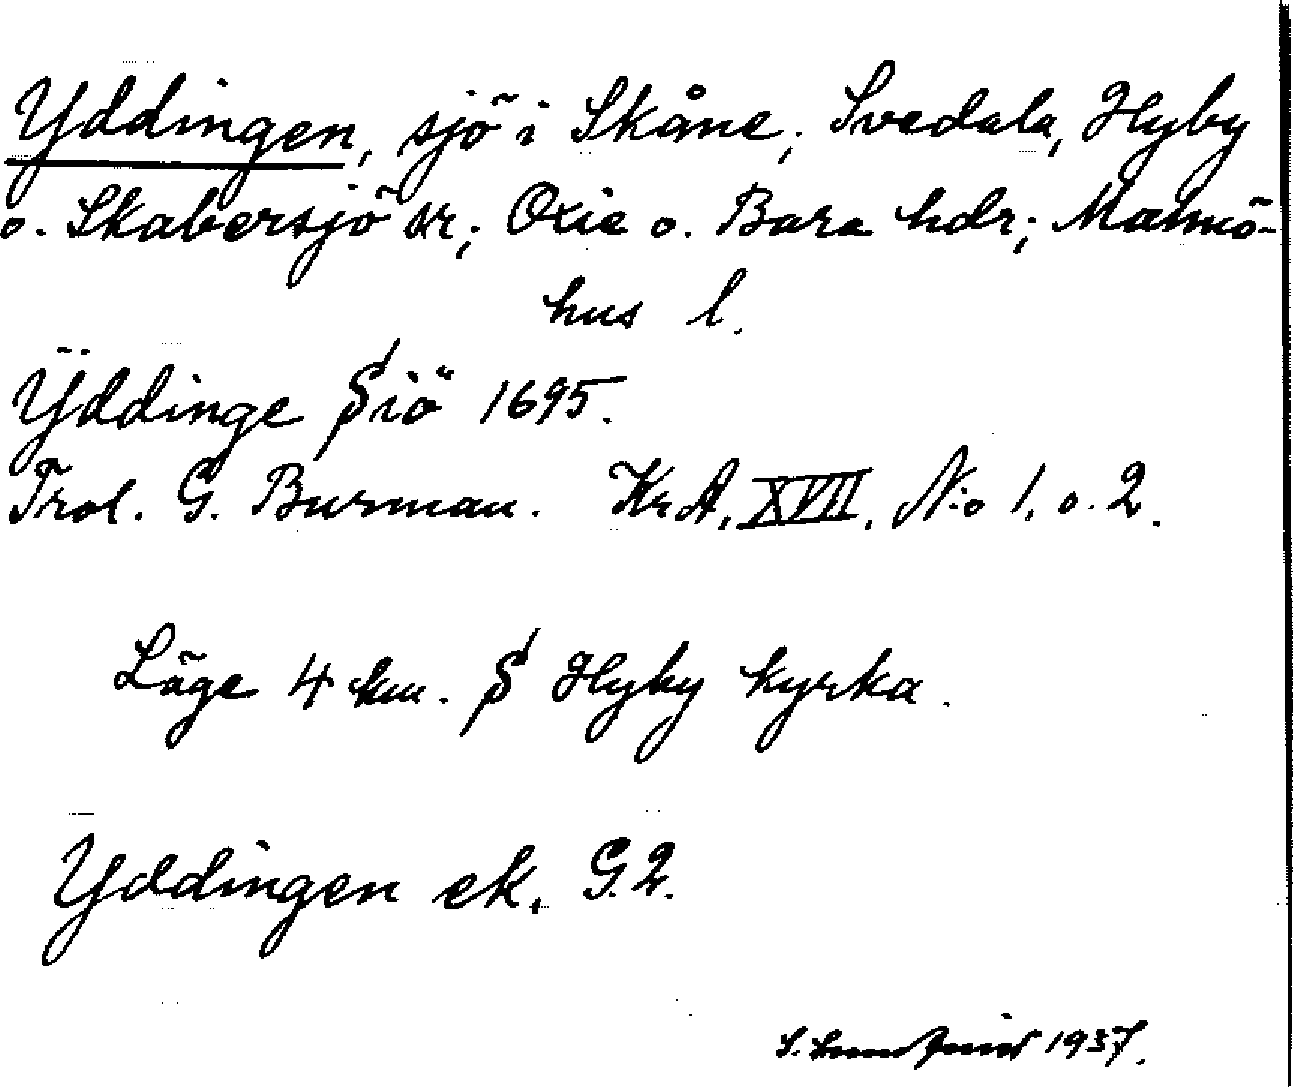 Yddingen, sjö i Skåne; Svedala, Hyby
o. Skabersjö sr; Oxie o. Bara hdr; Malmö-
hus l.
Ÿddinge Siö 1695.
Trol. G. Burman. Kr.A. XVII. N:o 1. o. 2.
Läge 4 km. S Hyby kyrka.
Yddingen ek. G.2.
S. 1937.